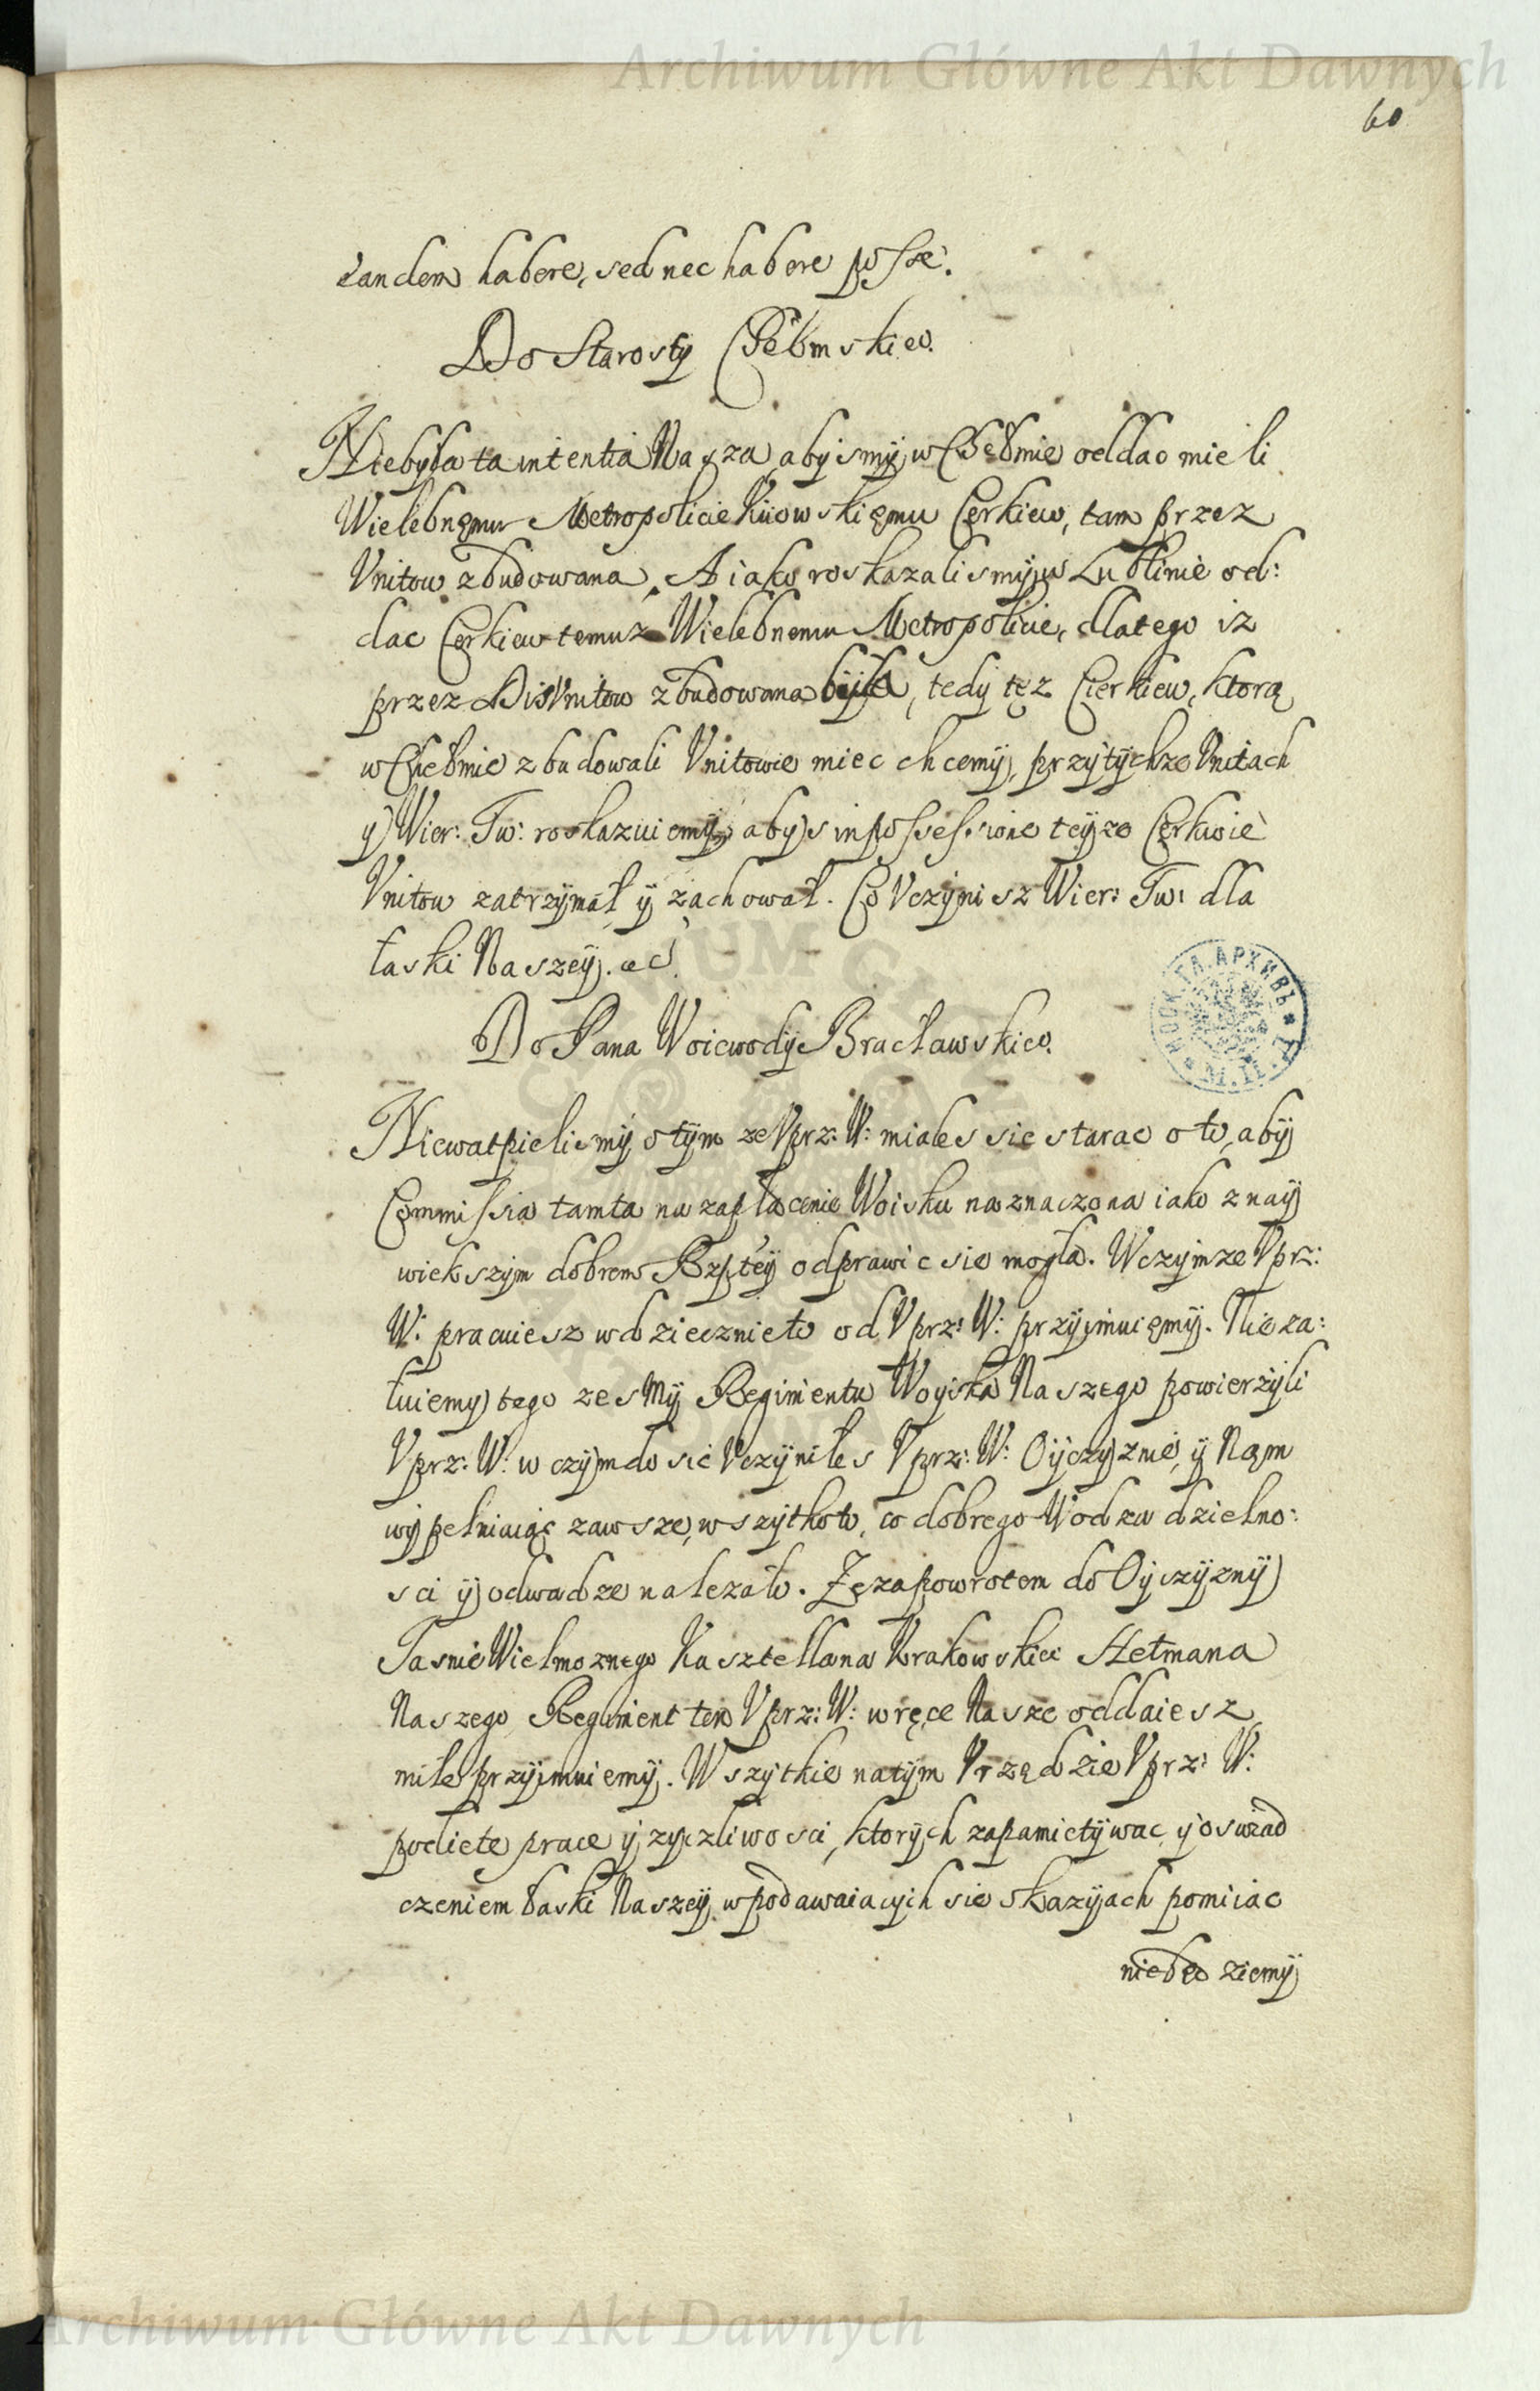 Archiwum Główne Akt Dawnych
60
tandem habere, sed nec habere posse.
Do Starosty Chełmskieo.
Niebyła ta intentia Nasza, abysmy w Chełmie oddac mieli
Wielebnęmu Metropolicie Kiiowskięmu Cerkiew, tam przez
Vnitow zbudowana, A iako roskazalismy w Lublinie od:
dac Cerkiew temuz Wielebnemu Metropolicie, dlatego iz
przez DisVnitow zbudowana była, tedy tęz Cierkiew, ktorą
w Chełmie zbudowali Vnitowie miec chcemy, przy tychze Vnitach
y Wier: Tw: roskazuiemy, abys in possessione teyze Cerkwie
Vnitow zatrzymał y zachował. Co Vczynisz Wier: Tw: dla
łaski Naszey. ec.
Do Pana Woiewody Bracławskieo.
Niewatpielismy o tym ze Vprz: W: miałes sie starac o to, aby
Commissia tamta na zapłacenie Woisku naznaczona iako z nay
wiekszym dobrem Rzptey odprawic sie mogła. W czym ze Vprz:
W: pracuiesz wdziecznie to od Vprz: W: przyimuięmy. Nieza:
łuiemy tego ze smy Regimentu Woyska Naszego powierzyli
Vprz: W: w czym dosic Vczyniłes Vprz: W: Oyczyznie, y Nąm
wypełniaiąc zawsze, wszytko to, co dobrego Wodza dzielno:
sci y odwadze nalezało. Zę za powrotem do Oyczyzny
Jasnie Wielmoznego Kasztellana Krakowskieo Hetmana
Naszego Regiment ten Vprz: W: w ręce Nasze oddaiesz
mile przyimuiemy. Wszytkie na tym Vrzędzie Vprz: W:
podiete prace y zyczliwosci, ktorych zapamiętywac y oswiad
czeniem łaski Naszey w podawaiacych sie okazyach pomiiac
niebędziemy
МОСК. ГЛ. АРХИВЪ
Archiwum Główne Akt Dawnych